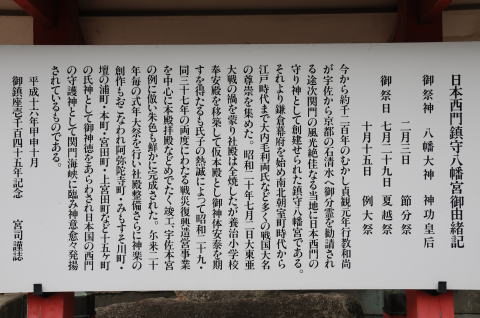 日本西門鎮守八幡宮御由緒記
御祭神 八幡大神 神功皇后
御祭日 二月三日 節分祭
七月二十九日 夏越祭
十月十五日 例大祭
今から約千二百年のむかし貞観元年行教和尚
が宇佐から京都の石清水へ御分霊を勧請され
る途次関門の風光絶佳なる当地に日本西門の
守り神として創建せられた鎮守八幡宮である。
それより鎌倉幕府を始め南北朝室町時代から
江戸時代まで大内毛利両氏など多くの戦国大名
の尊崇を集めた。昭和二十年七月二日大東亜
大戦の禍を蒙り社殿は全焼したが養治小学校
奉安殿を移築して仮本殿とし御神体安泰を期
すを得たるも氏子の熱誠によって昭和二十九・
同三十七年の両度にわたる戦災復興造営事業
を中心に本殿拝殿などめでたく竣工、宇佐本宮
の例に倣い朱色も鮮かに完成された。尓来二十
年毎の式年大祭を行い社殿整備さらに神楽の
創作もおこなわれ阿弥陀寺町・みもすそ川町・
壇の浦町・本町・宮田町・上宮田町など十五ヶ町
の氏神として御神徳をあらわされ日本国の西門
の守護神として関門海峡に臨み神意愈々発揚
されているものである。
平成十六年甲申十月
御鎮座壱千百四十五年記念 宮司謹誌